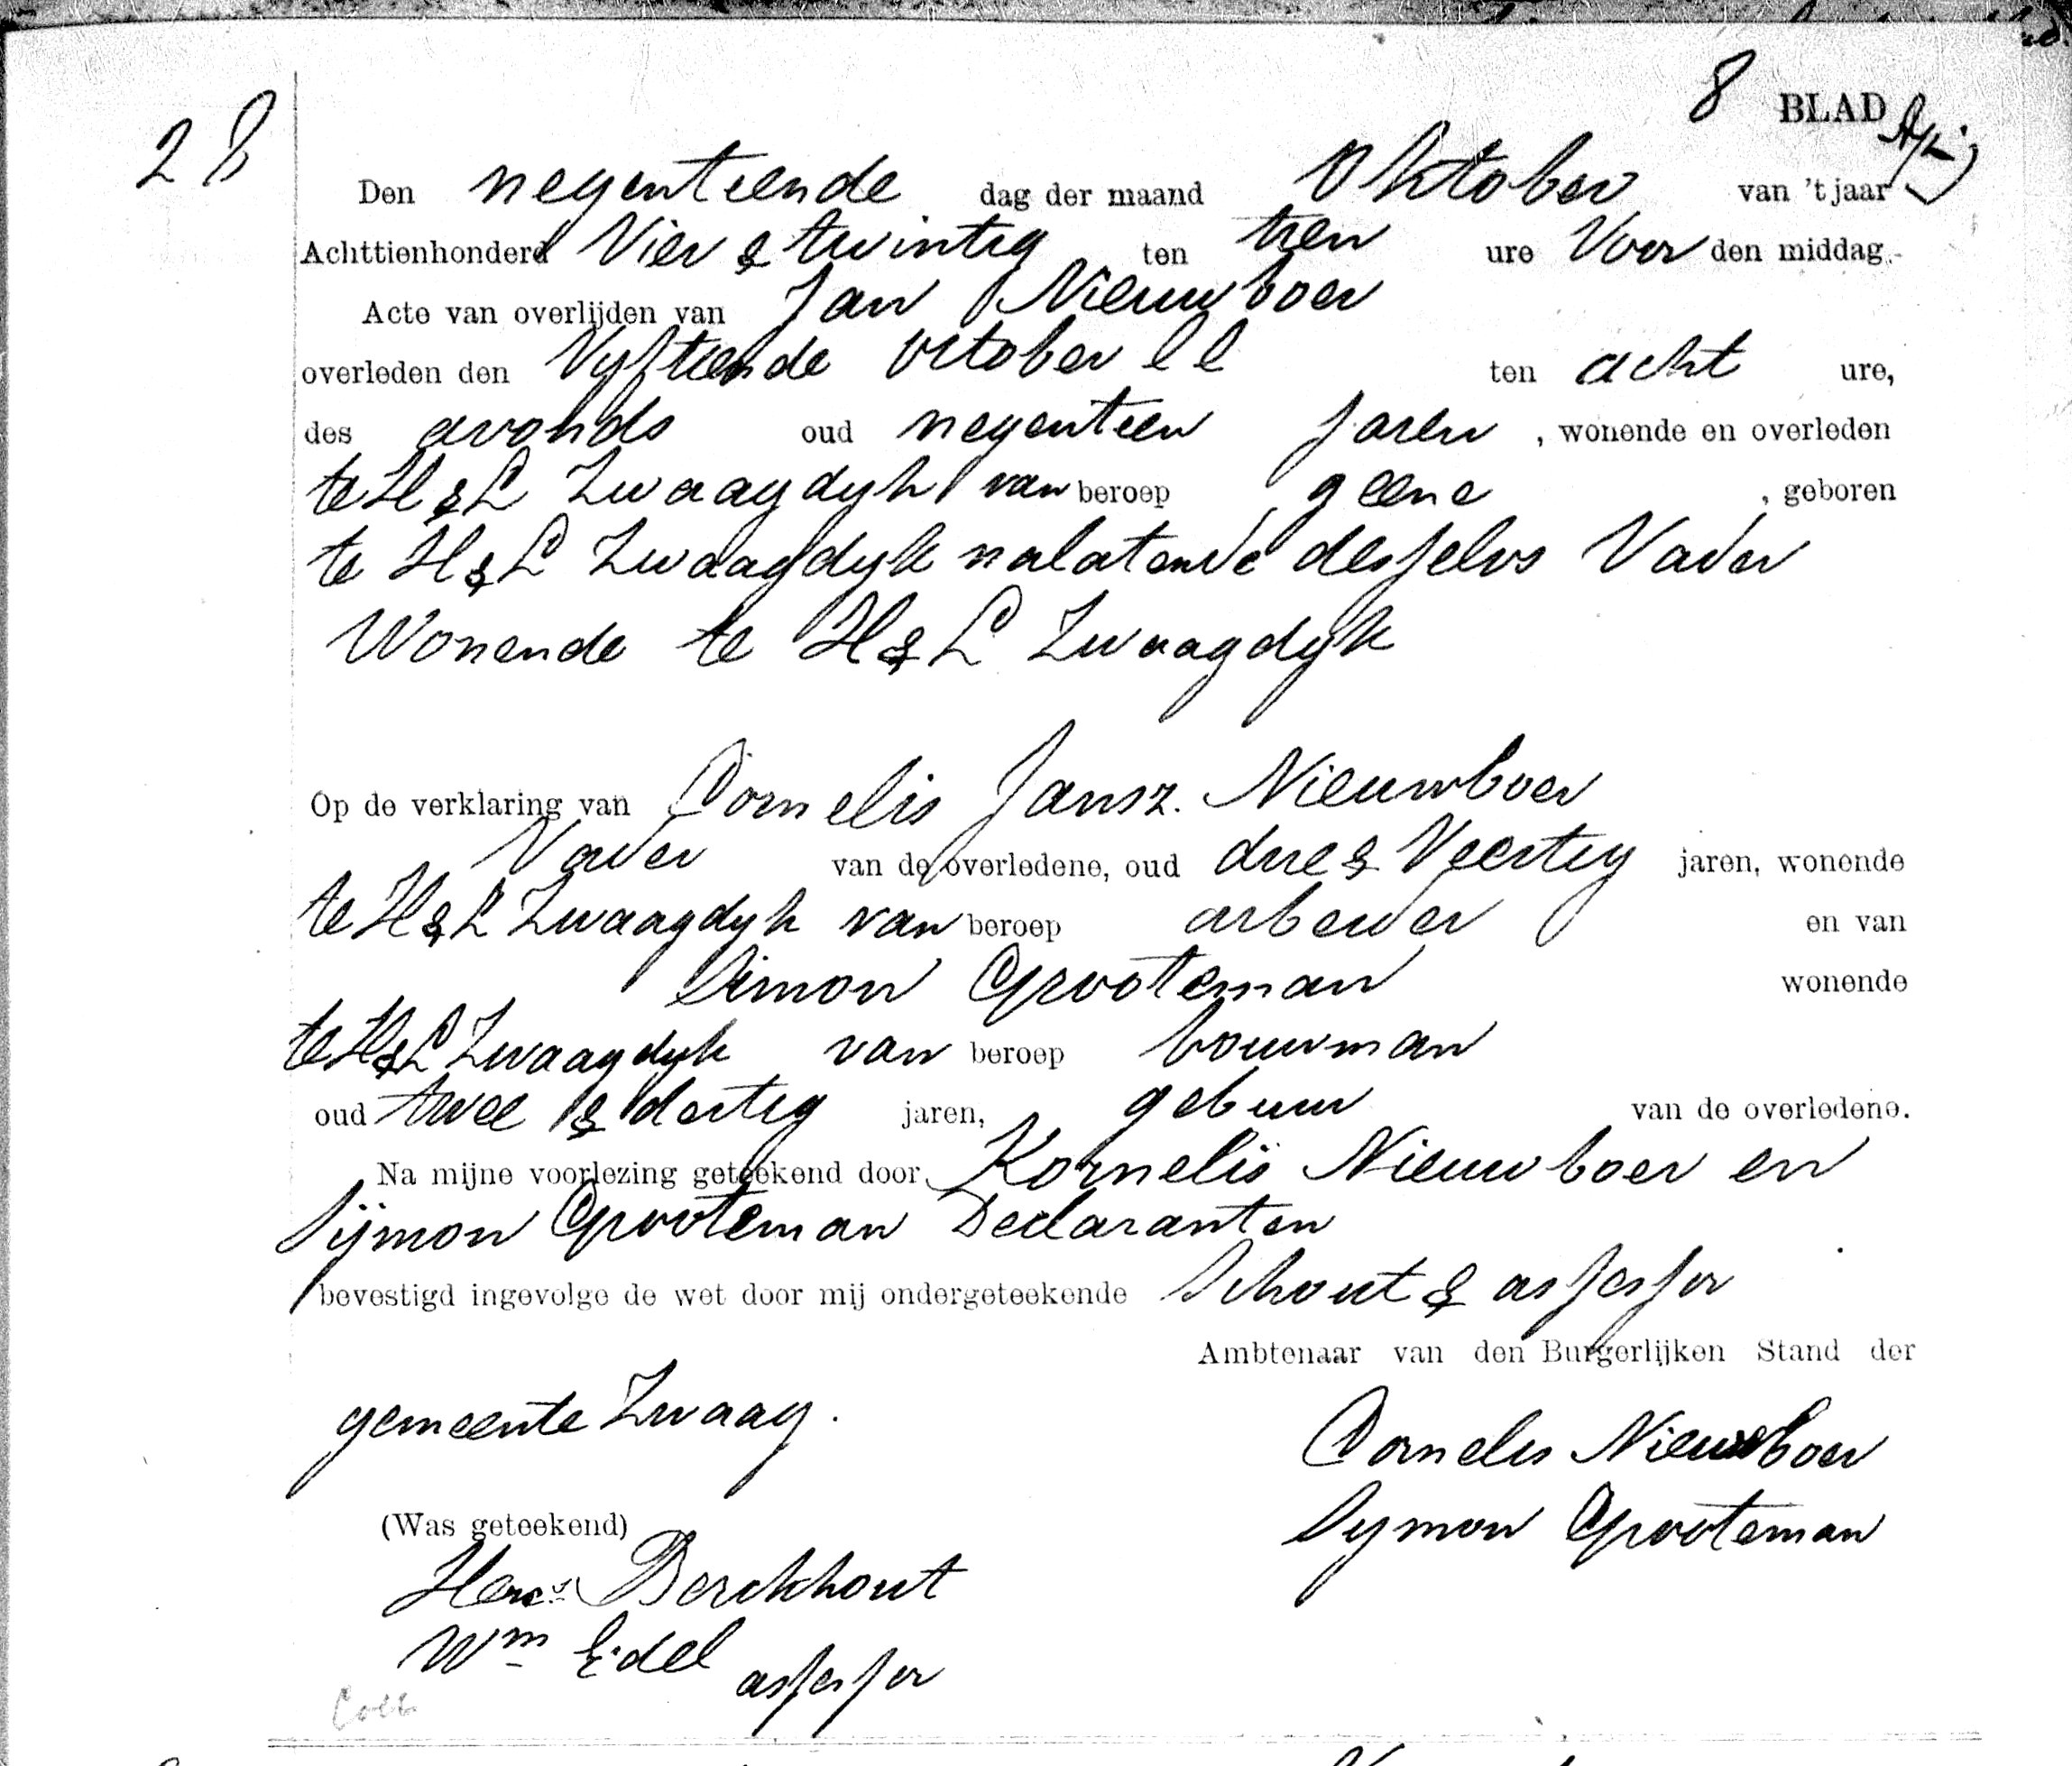 8 BLAD
28
Den negentiende dag der maand Oktober van 't jaar
Achttienhonderd Vier & twintig ten tien ure Voor den middag.
Acte van overlijden van Jan Nieuwboer
overleden den Vyftiende October ll ten acht ure,
des avonds oud negentien Jaren, wonende en overleden
te H & L Zwaagdyk van beroep geene, geboren
te H & L Zwaagdyk nalatende desselvs Vader
Wonende te H & L Zwaagdyk
Op de verklaring van Cornelis Jansz. Nieuwboer
Vader van de overledene, oud drie & Veertig jaren, wonende
te H & L Zwaagdyk van beroep arbeider en van
Simon Grooteman wonende
te H & L Zwaagdyk van beroep bouwman
oud twee & dertig jaren, gebuur van de overledene.
Na mijne voorlezing geteekend door Kornelis Nieuwboer en
Sijmon Grooteman Declaranten
bevestigd ingevolge de wet door mij ondergeteekende Schout & assessor
Ambtenaar van den Burgerlijken Stand der
gemeente Zwaag.
Cornelis Nieuwboer
Symon Grooteman
(Was geteekend)
Berckhout
Wm Edel assessor